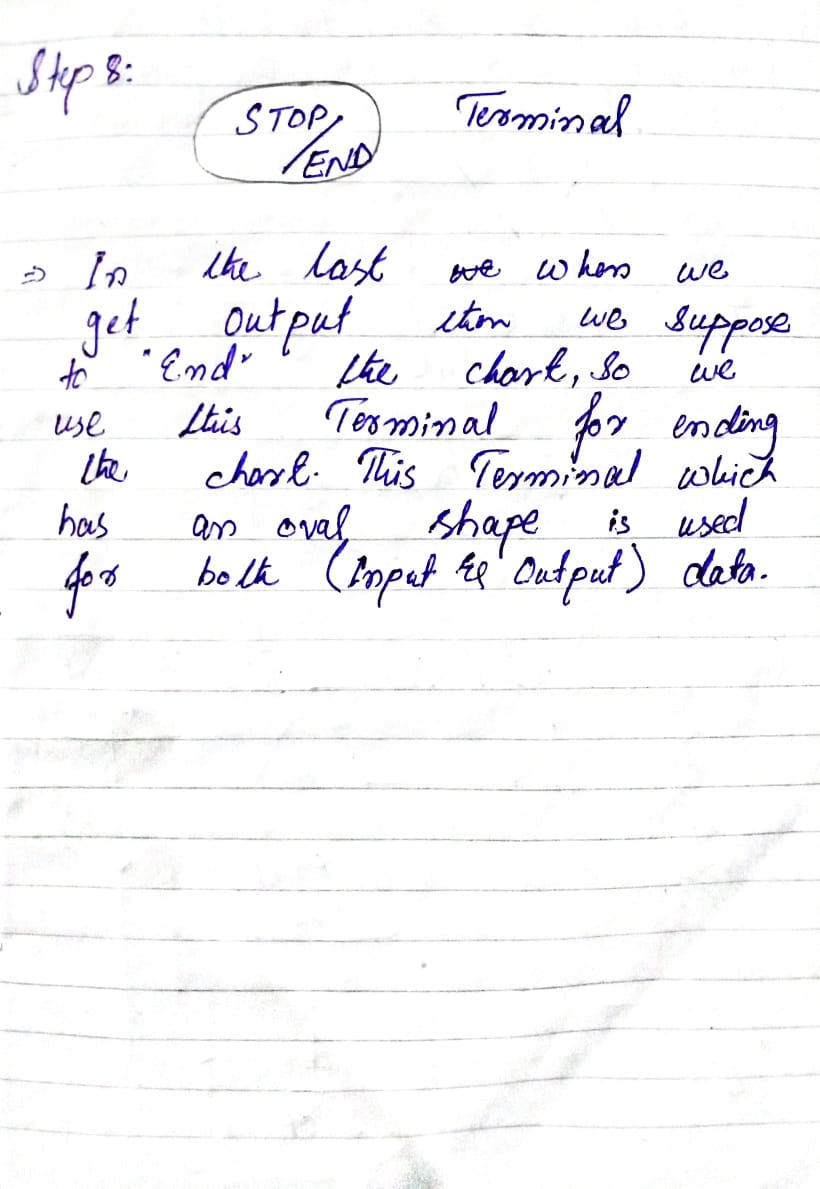 Step 8:
STOP/ Terminal
END
⇒ In the last we when we
get output then we suppose
to "End" the chart, so we
use this Terminal for ending
the chart. This Terminal which
has an oval shape is used
for both (Input & Output) data.